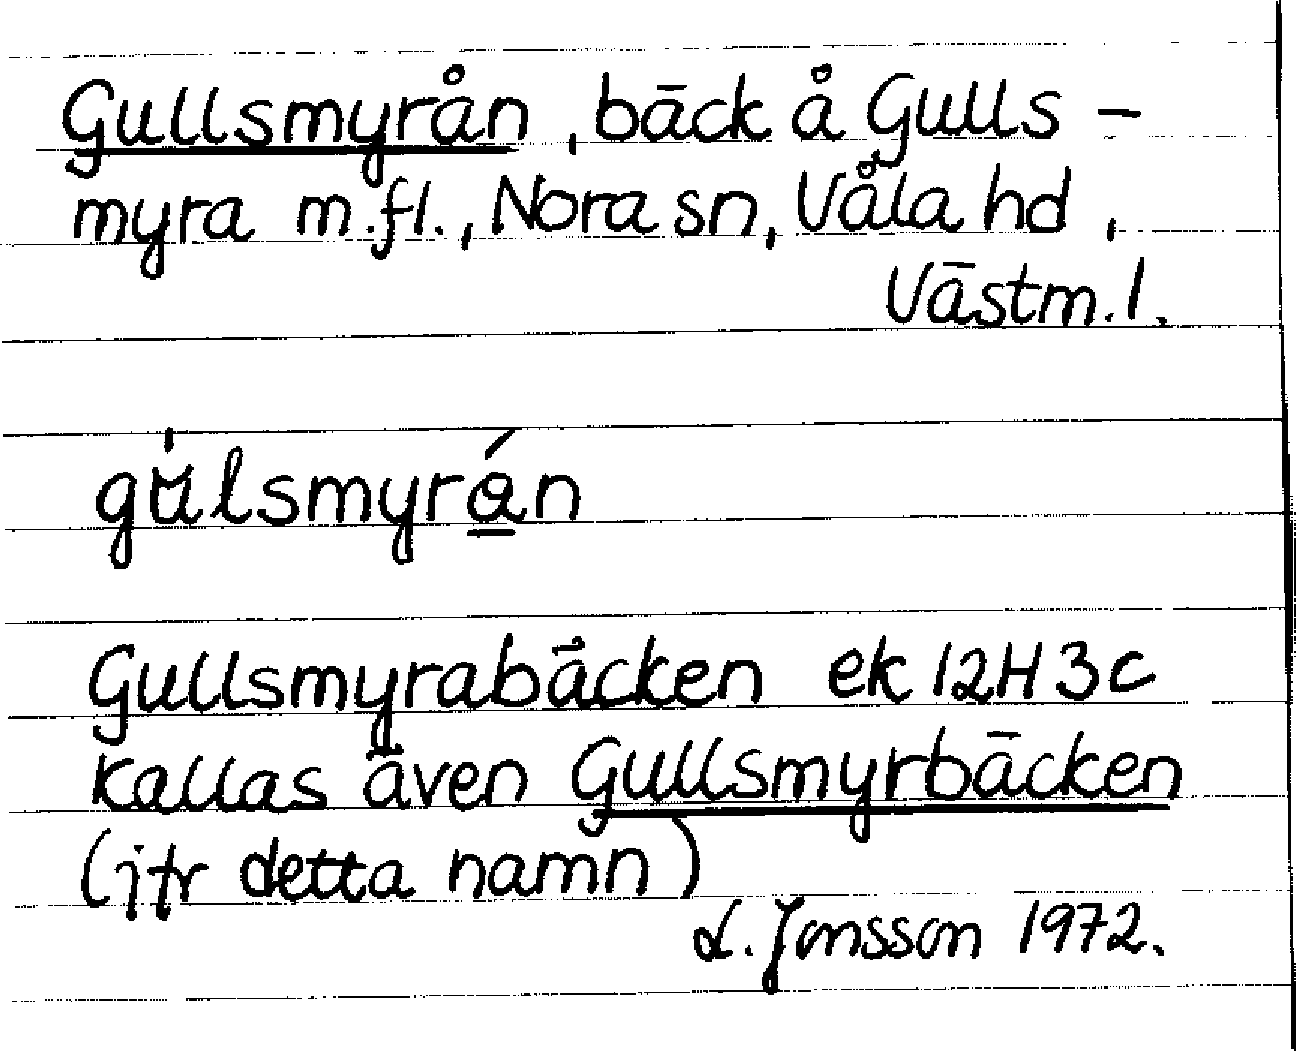 Gullsmyrån, bäck å Gulls-
myra m.fl., Nora sn, Våla hd,
Västm. l.
gu̍lsmyrá̱n
Gullsmyrabäcken ek 12H3c
kallas även Gullsmyrbäcken
(jfr detta namn)
L. Jonsson 1972.